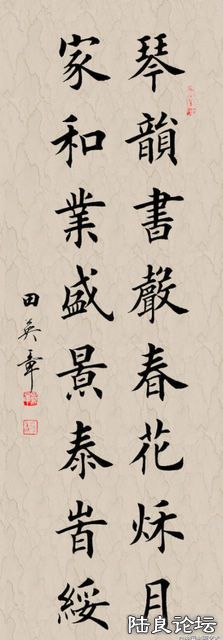 琴韻書聲春花秌月
家和業盛景泰旹綏
田英章
陆良论坛